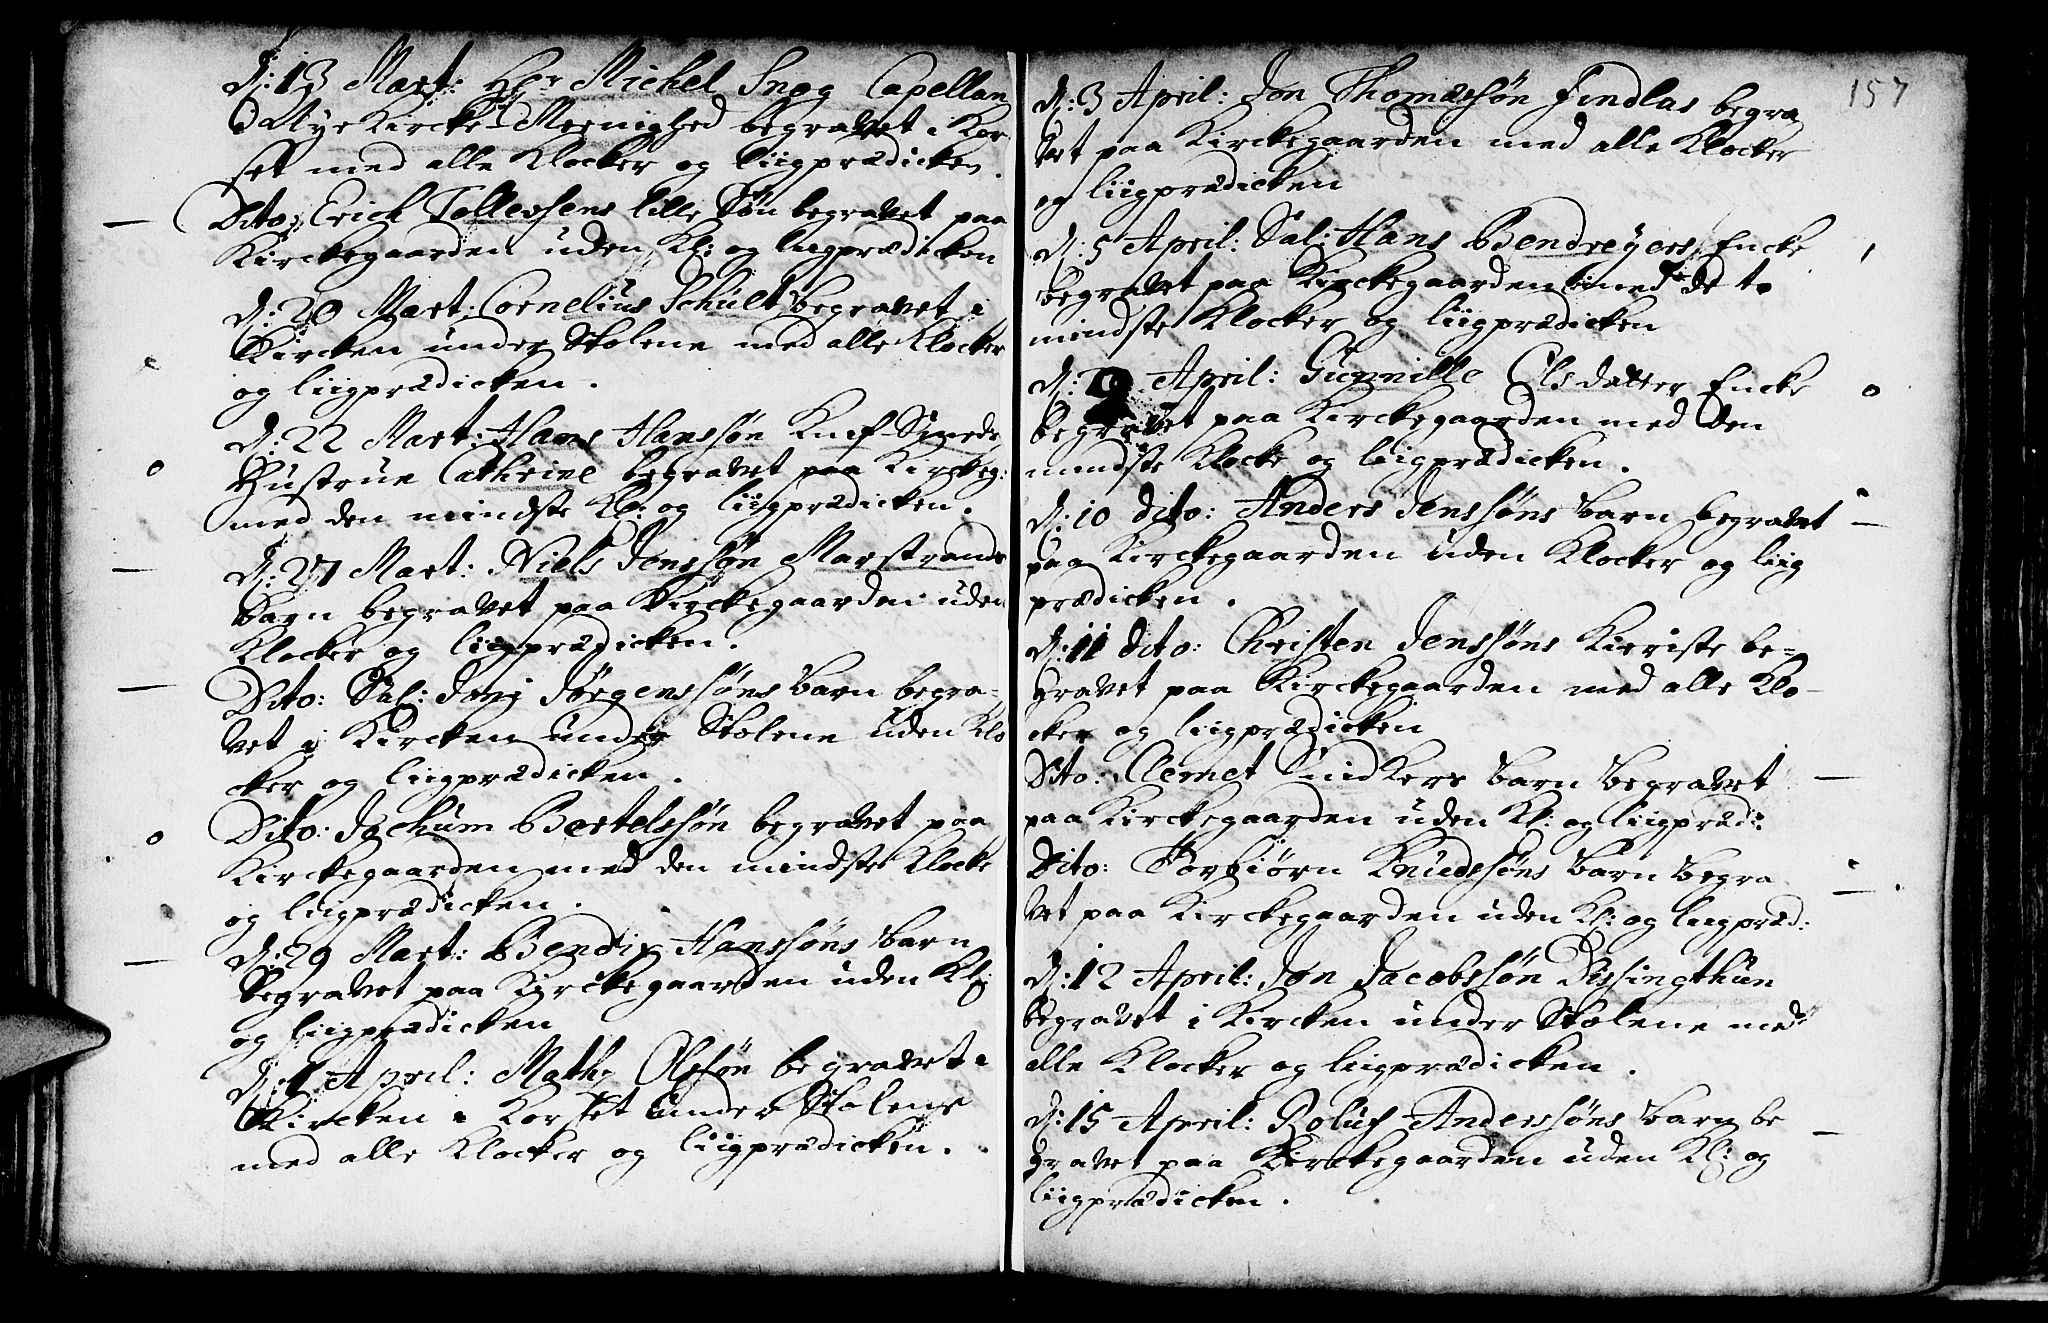 D: 13 Mart: Hr Michel Snog Capellan
i Nye Kircke Meenighed begravet i Kor
set med alle Klocker og liigprædicken.
Dito: Erich Tollevsens lille Søn begravet paa
Kirckegaarden uden Kl: og liigprædicken
D: 20 Mart: Cornelius Schült begravet i
Kircken under Stolene med alle Klocker
og liigprædicken.
D: 22 Mart: Hans Hanssøn Knif-Smeds
Hustrue Cathrine begravet paa Kirckeg:
med den mindste Kl: og liigprædicken.
D: 27 Mart: Niels Jenssøn Marstrands
Barn begravet paa Kirckegaarden uden
Klocker og liigprædicken.
Dito: Sal: Jørgenssøns Barn begra-
vet i Kircken under Stolene uden Klo
cker og liigprædicken.
Dito: Jochum Bertelssøn begravet paa
Kirckegaarden med den mindste Klocke
og liigprædicken.
D: 29 Mart: Bendix Hanssøns Barn
begravet paa Kirckegaarden uden Kl:
og liigprædicken
D: 1 April: Math: Olssøn begravet i
Kircken i Korset under Stolene
med alle Klocker og liigprædicken.
157
D: 3 April: Jon Thomæssøn Findlas begra
vet paa Kirckegaarden med alle Klocker
og liigprædicken
D: 5 April: Sal: Hans Bendreyers Encke
begravet paa Kirckegaarden med de to
mindste Klocker og liigprædicken
D: April: Gunnille Olsdatter Encke
begravet paa Kirckegaarden med den
mindste Klocke og liigprædicken.
D: 10 dito: Anders Jenssøns Barn begravet
paa Kirckegaarden uden Klocker og liig
prædicken.
D: 11 dito: Christen Jenssøns Kieriste be-
gravet paa Kirckegaarden med alle Klo-
cker og liigprædicken
Dito: Clemet Snidkers Barn begravet
paa Kirckegaarden uden Kl: og liigprædi:
Dito: Torbiørn Knudssøns Barn begra
vet paa Kirckegaarden uden Kl: og liigpræd:
D: 12 April: Jon Jacobssøn Dissingthun
begravet i Kircken under Stolene med
alle Klocker og liigprædicken.
D: 15 April: Roluf Anderssøns Barn be
gravet paa Kirckegaarden uden Kl: og
liigprædicken.